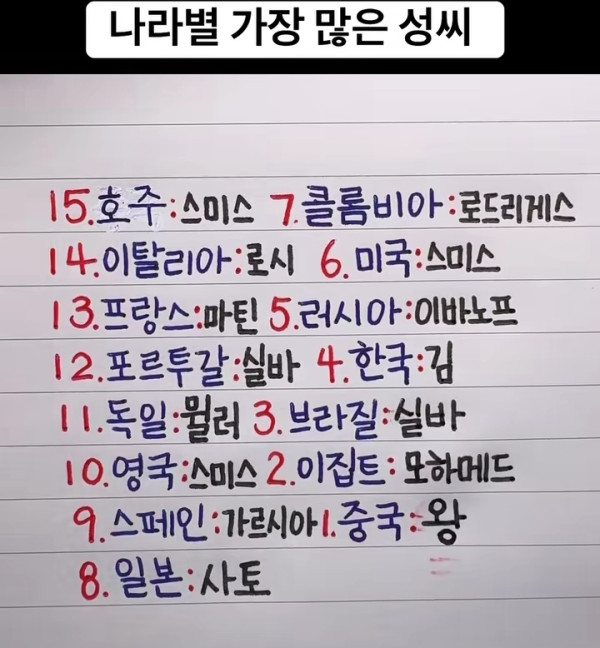 나라별 가장 많은 성씨
15.호주:스미스 7.콜롬비아:로드리게스
14.이탈리아:로시 6.미국:스미스
13.프랑스:마틴 5.러시아:이바노프
12.포르투갈:실바 4.한국:김
11.독일:뮐러 3.브라질:실바
10.영국:스미스 2.이집트:모하메드
9.스페인:가르시아 1.중국:왕
8.일본:사토